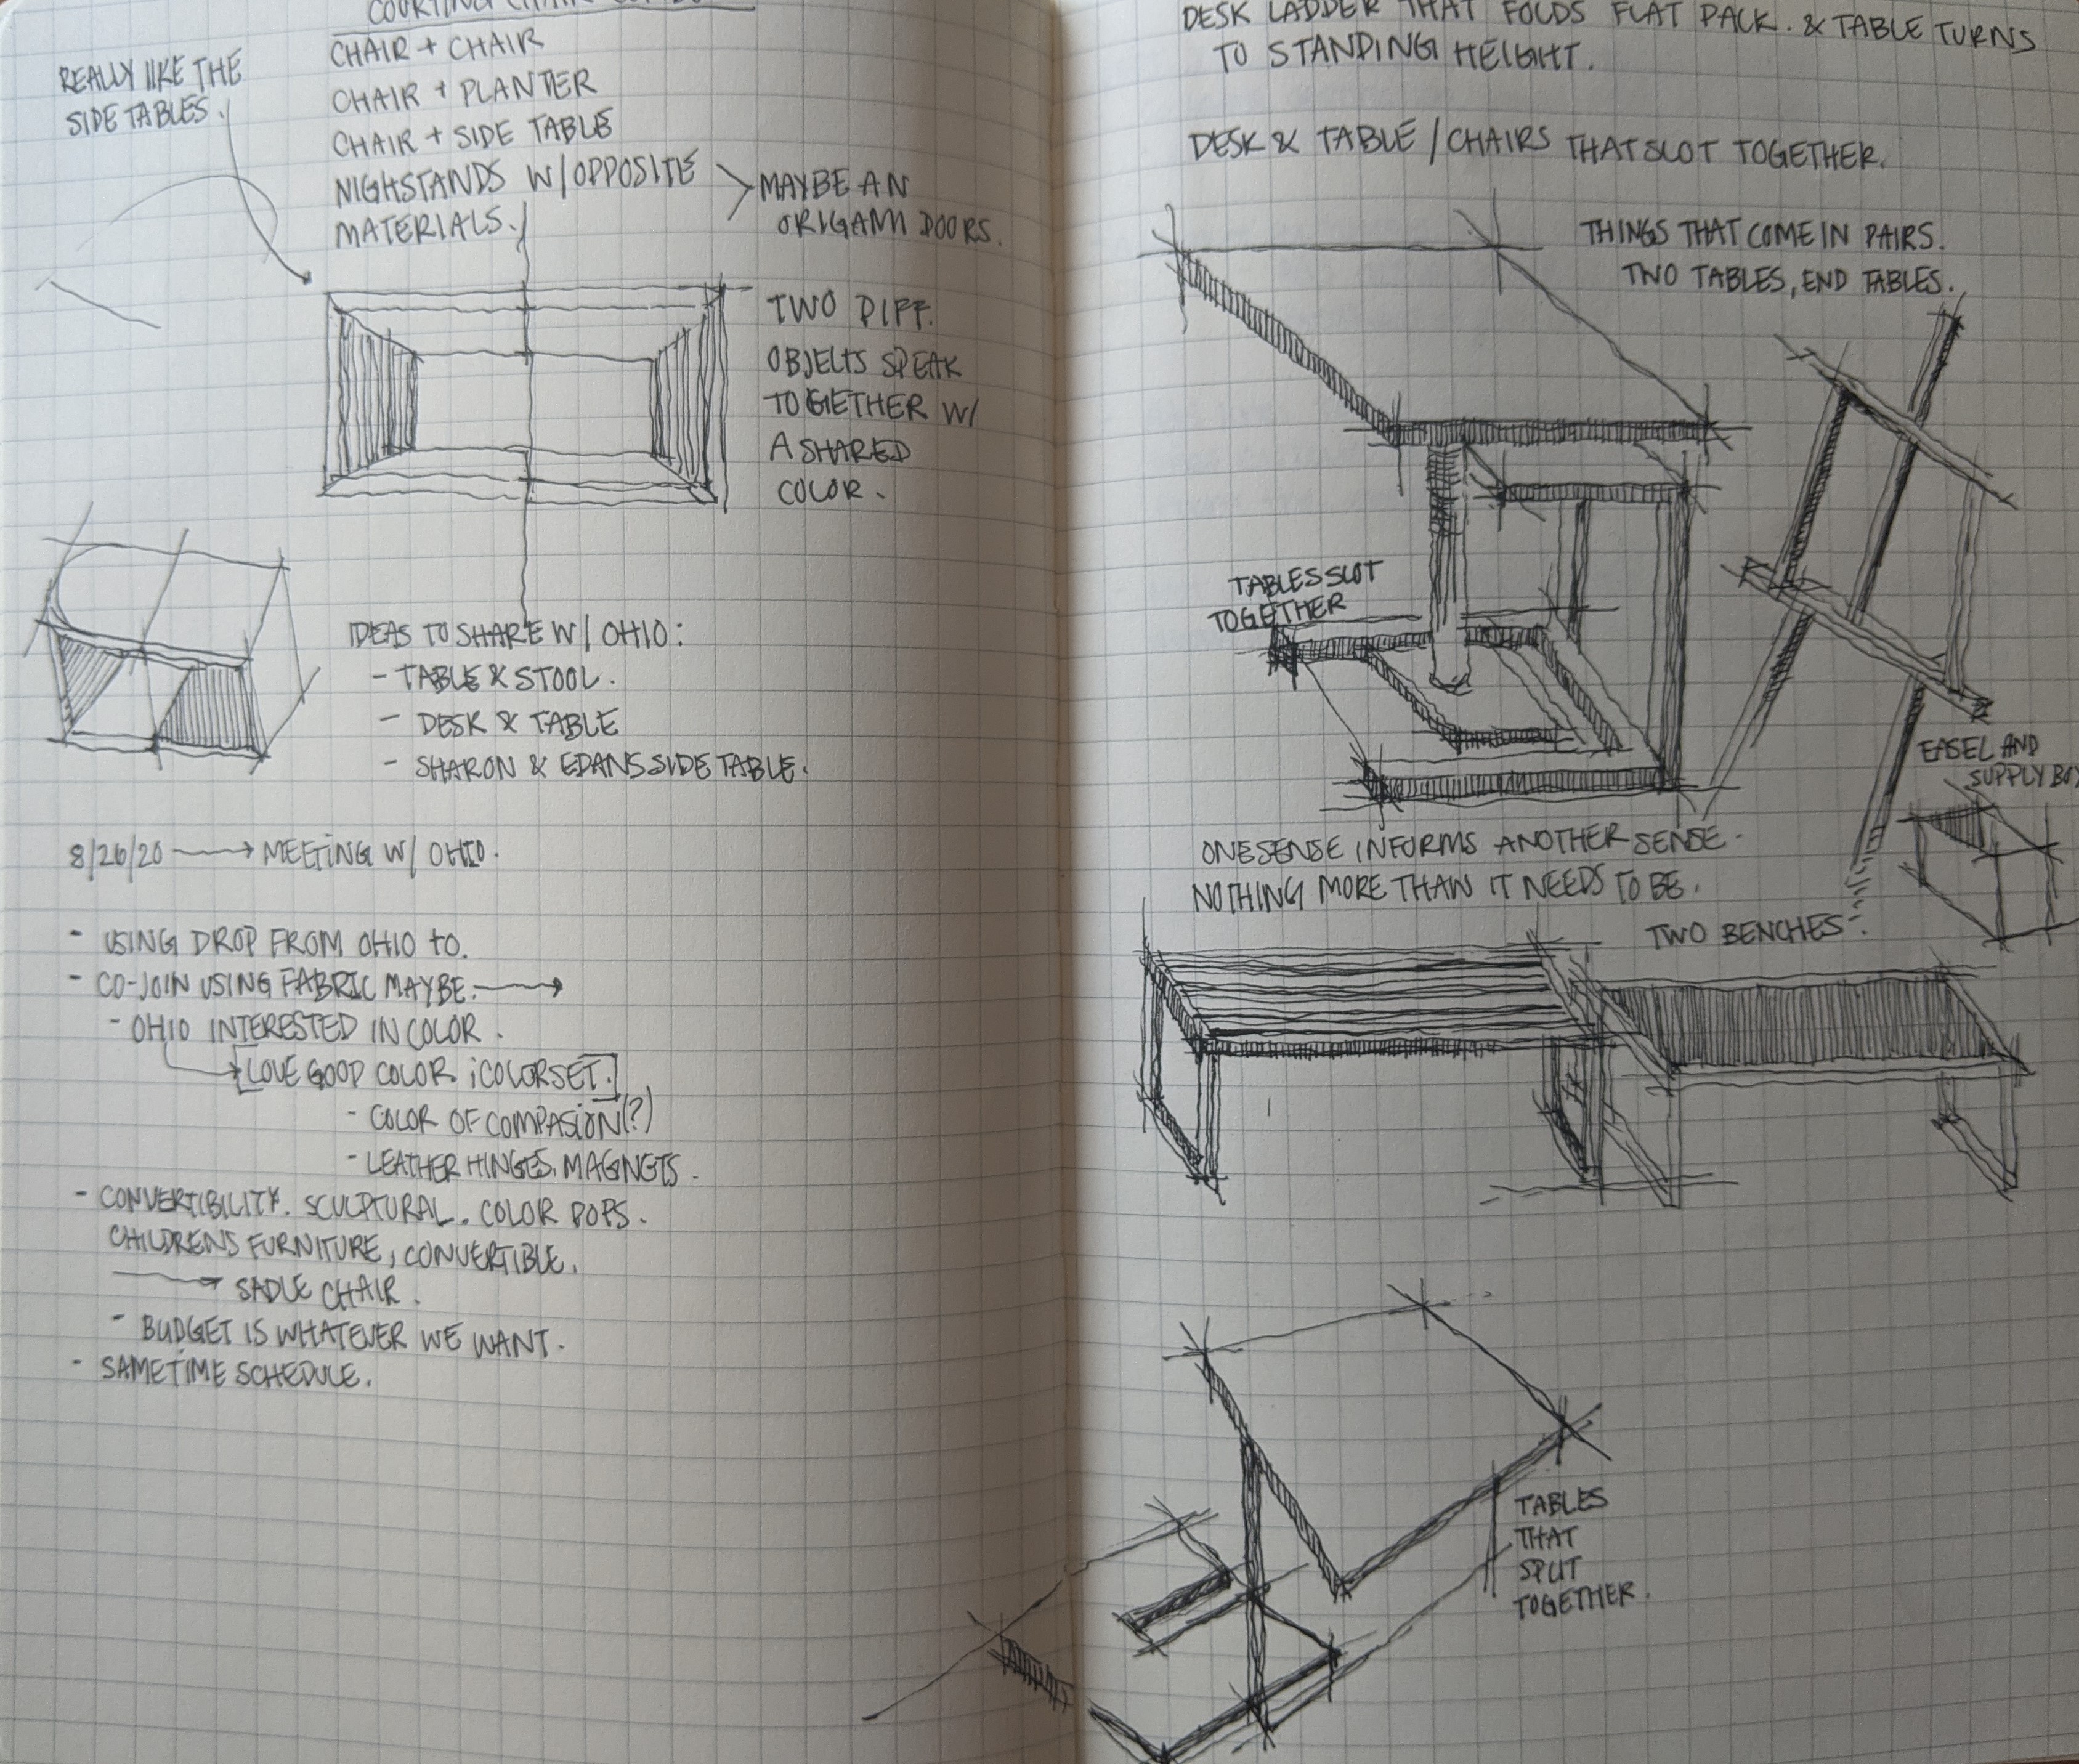 COURTING CHAIR
CHAIR + CHAIR
CHAIR + PLANTER
CHAIR + SIDE TABLE
NIGHSTANDS W/OPPOSITE
MATERIALS.
REALLY LIKE THE
SIDE TABLES.
MAYBE AN
ORIGAMI DOORS.
TWO DIFF.
OBJELTS SPEAK
TOGETHER W/
A SHARED
COLOR.
IDEAS TO SHARE W/ OHIO:
- TABLE & STOOL.
- DESK & TABLE
- SHARON & EDANS SIDE TABLE.
8/26/20 → MEETING W/ OHIO.
- USING DROP FROM OHIO to.
- CO-JOIN USING FABRIC MAYBE. →
- OHIO INTERESTED IN COLOR.
→ [LOVE GOOD COLOR ; COLORSET.]
- COLOR OF COMPASION(?)
- LEATHER HINGES, MAGNETS.
- CONVERTIBILITY. SCULPTURAL. COLOR POPS.
CHILDRENS FURNITURE, CONVERTIBLE.
→ SADLE CHAIR.
- BUDGET IS WHATEVER WE WANT.
- SAMETIME SCHEDULE.
DESK LADDER THAT FOLDS FLAT PACK. & TABLE TURNS
TO STANDING HEIGHT.
DESK & TABLE / CHAIRS THAT SLOT TOGETHER.
THINGS THAT COME IN PAIRS.
TWO TABLES, END TABLES.
TABLES SLOT
TOGETHER
EASEL AND
SUPPLY BOX
ONE SENSE INFORMS ANOTHER SENSE.
NOTHING MORE THAN IT NEEDS TO BE.
TWO BENCHES.
TABLES
THAT
SPLIT
TOGETHER.